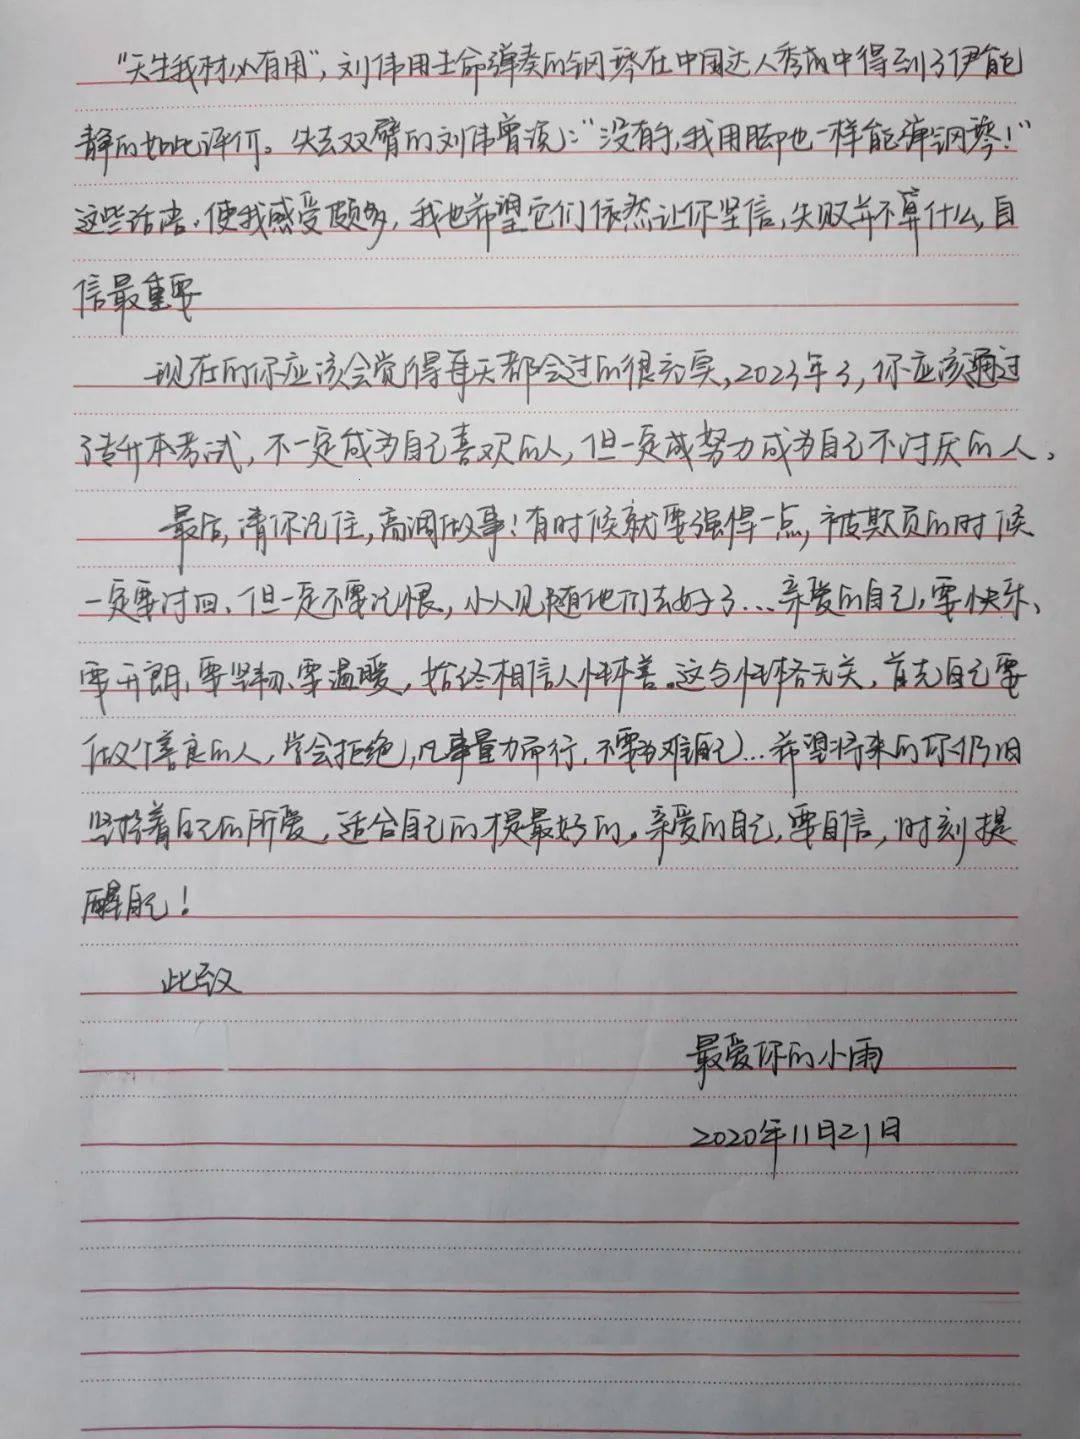 “天生我材必有用”，刘伟用生命弹奏的钢琴在中国达人秀中得到了伊能
静的如此评价。失去双臂的刘伟曾说：“没有手，我用脚也一样能弹钢琴！”
这些话语，使我感受颇多，我也希望它们依然让你坚信，失败并不算什么，自
信最重要
现在的你应该会觉得每天都会过的很充实，2023年了，你应该通过
了专升本考试，不一定成为自己喜欢的人，但一定成努力成为自己不讨厌的人。
最后，请你记住，高调做事！有时候就要强悍一点，被欺负的时候
一定要讨回、但一定不要记恨，小人见随他们去好了…亲爱的自己，要快乐、
要开朗、要坚韧、要温暖，始终相信人性本善。这与性格无关，首先自己要
做个善良的人，学会拒绝，凡事量力而行，不要为难自己…希望将来的你仍旧
坚持着自己的所爱，适合自己的才是最好的。亲爱的自己，要自信，时刻提
醒自己！
此致
最爱你的小雨
2020年11月21日